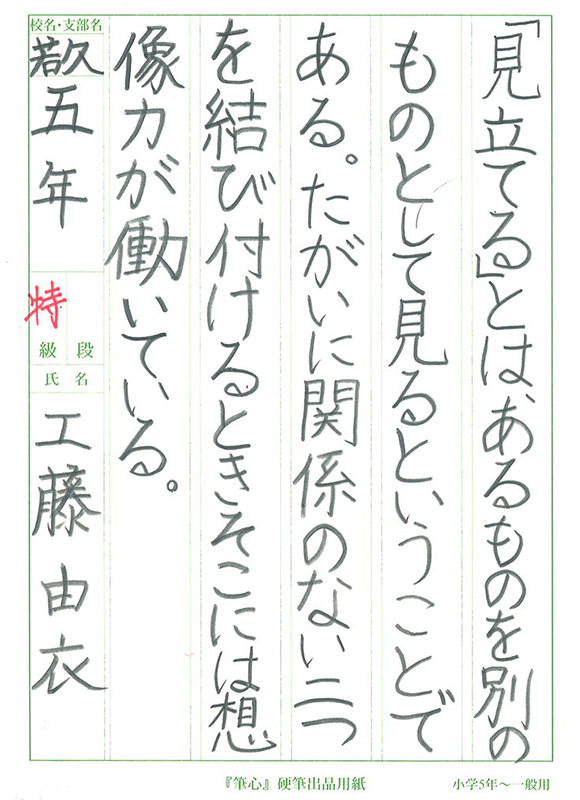 「見立てる」とは、あるものを別の
ものとして見るということで
ある。たがいに関係のない二つ
を結び付けるときそこには想
像力が働いている。
校名・支部名
五年
特
級 段
氏名
工藤由衣
『筆心』硬筆出品用紙
小学5年〜一般用